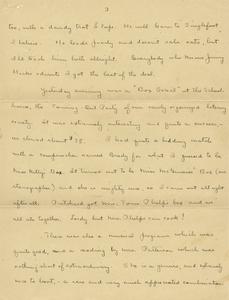 3
too, with a dandy that I hope. He will learn to Singlefoot,
I believe. He leads fairly and doesn't take oats, but
I'll teach him both allright. Everybody who knows
Mader admits I got the best of the deal.
Yesterday evening was a "Box Social" at the School
house, the Coming Out Party of our newly organized literary
society. It was extremely interesting and quite a success -
we cleared about $75. I had quite a bidding match
with a
Miss box. It turned out to be Miss McGinnis' Box (our
stenographer) and she is mighty nice, so I came out allright
after all. Pritchard got Mrs. Phelps box and we
all ate together. Lordy but Mrs. Phelps can cook!
There was also a musical program which was
quite good, and a reading by Mrs. Patterson which was
nothing short of extraordinary. She is a genius, and extremely
nice to boot, - a rare and mighty appreciated combination